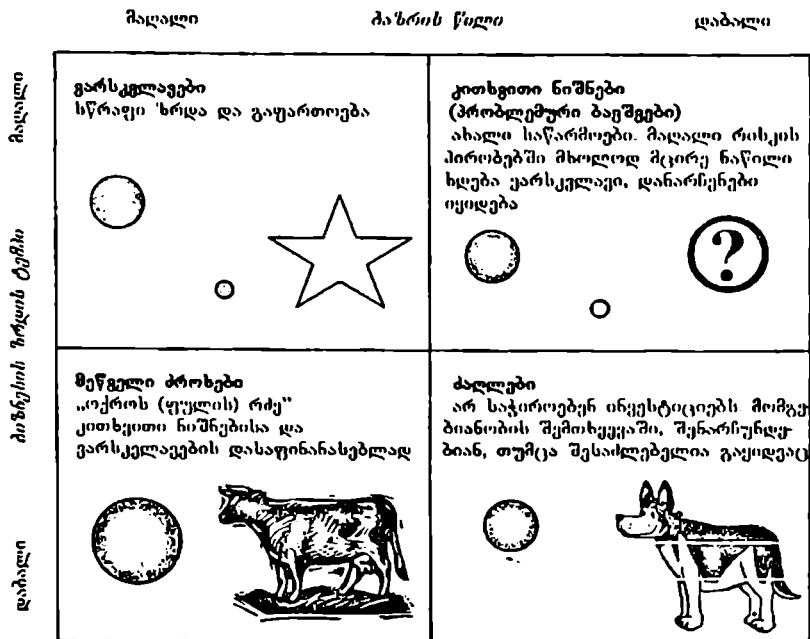 მაღალი ბაზრის წილი დაბალი
მაღალი
ბიზნესის ზრდის ტემპი
დაბალი
ვარსკვლავები
სწრაფი ზრდა და გაფართოება
კითხვითი ნიშნები
(პრობლემური ბავშვები)
ახალი საწარმოები. მაღალი რისკის
პირობებში მხოლოდ მცირე ნაწილი
ხდება ვარსკვლავი, დანარჩენები
იყიდება
?
მეწველი ძროხები
„ოქროს (ფულის) რძე”
კითხვითი ნიშნებისა და
ვარსკვლავების დასაფინანასებლად
ძაღლები
არ საჭიროებენ ინვესტიციებს. მომგე-
ბიანობის შემთხვევაში, შენარჩუნდე-
ბიან, თუმცა შესაძლებელია გაყიდვაც